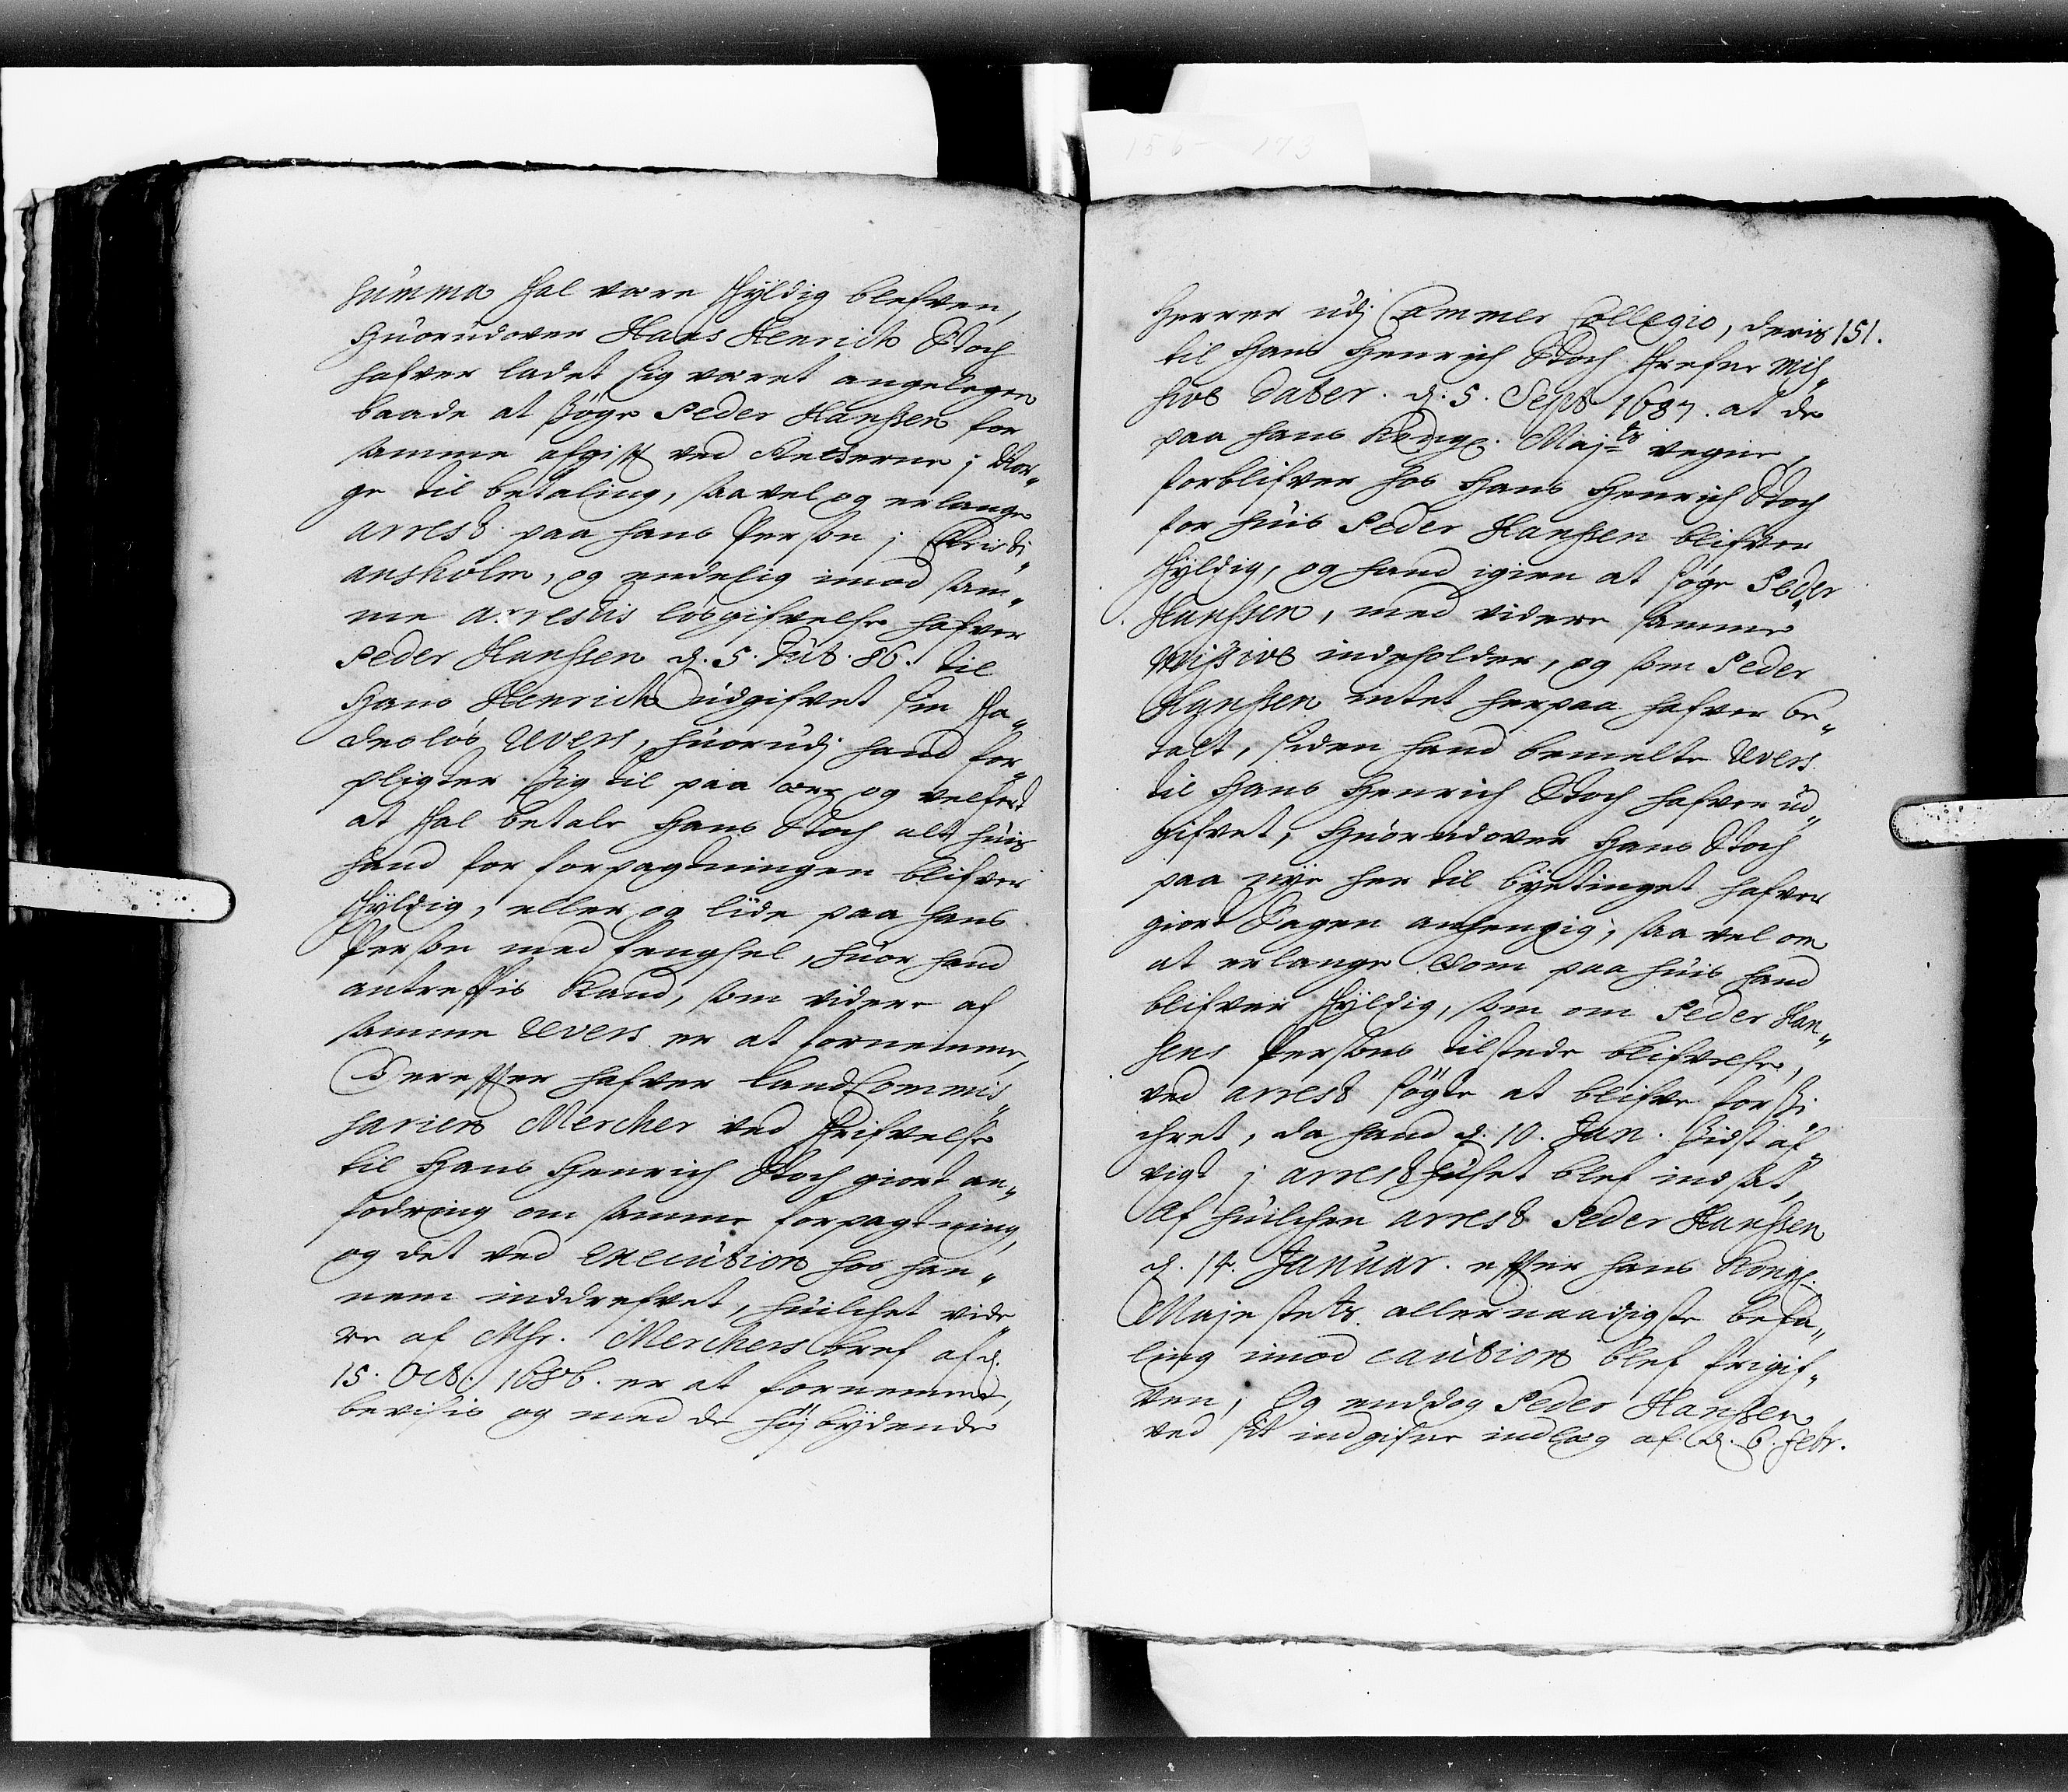 summa skal være skyldig blefven,
Huorudover Hans Henrich Stoch
hafver ladet sig været angelegen
baade at søge Peder Hanssen for
samme afgift ved Retterne j Nor„
ge til betaling, saavel og erlange
arrest paa hans Person j Christi„
ansholm, og endelig imod sam„
me arrestis løsgifvelse hafver
Peder Hanssen d. 5. 86. til
Hans Henrich udgifvet sin ska„
desløs Revers, huorudj hand for„
pligter sig til paa ære og velferd
at skal betale Hans Stoch alt huis
hand for forpagtningen blifver
skyldig, eller og lide paa hans
Person med fengsel, huor hand
antreffis kand, som videre af
samme Revers er at fornemme,
Derefter hafver Land Commis„
sarien Mercker ved skrifvelse
til Hans Henrich Stoch giort an„
fodring om samme forpagtning,
og det ved execution hos han„
nem inddrefvet, huilchet vide„
re af Mhr. Merckers bref af d.
15. Oct: 1686. er at fornemme,
bevisis og med de høybydende
Herrer udj Cammer Collegio, deris 151.
til Hans Henrich Stoch skrefne Mis„
sive Dater. d: 5. Sept 1687. at de
paa hans Kongl. Maj:ts vegne,
forblifver hos Hans Henrich Stoch
for huis Peder Hanssen blifver
skyldig, og hand igien at søge Peder
Hanssen, med videre samme
Missive indeholder, og som Peder
Hanssen intet herpaa hafver be„
talt, siden hand bemelte Revers
til Hans Henrich Stoch hafver ud„
gifvet, Huorudover Hans Stoch
paa nye her til byetinget hafver
giort Sagen anhengig, saa vel om
at erlange Dom paa huis hand
blifver skyldig, som om Peder Han„
sens Persons tilstede blifvelse,
ved arrest søgte at blifve forsi„
chret, da hand d. 10. Jan. sidst af„
vigt j arresthuset blef indsat,
Af huilchen arrest Peder Hanssen
d. 14. Januar. efter hans Kongl.
Majestets allernaadigste befa„
ling imod caution blef frigif„
ven, Og enddog Peder Hanssen
ved sit indgifne indlæg af d. 6. Febr.